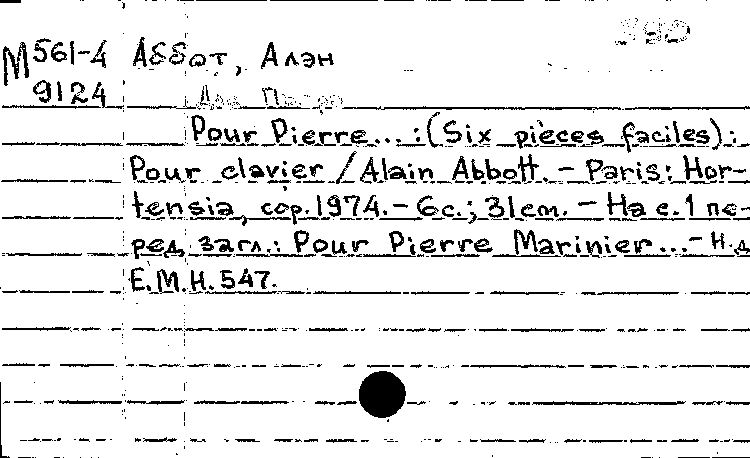 590
M 561-4 Аббот, Алэн
9124
Для Пьера
Pour Pierre... : (Six pièces faciles) :
Pour clavier / Alain Abbott. – Paris: Hor-
tensia, cop. 1974. – 6 с.; 31 cm. – На с. 1 пе-
ред загл.: Pour Pierre Marinier... – Н.д.
E.M.H. 547.